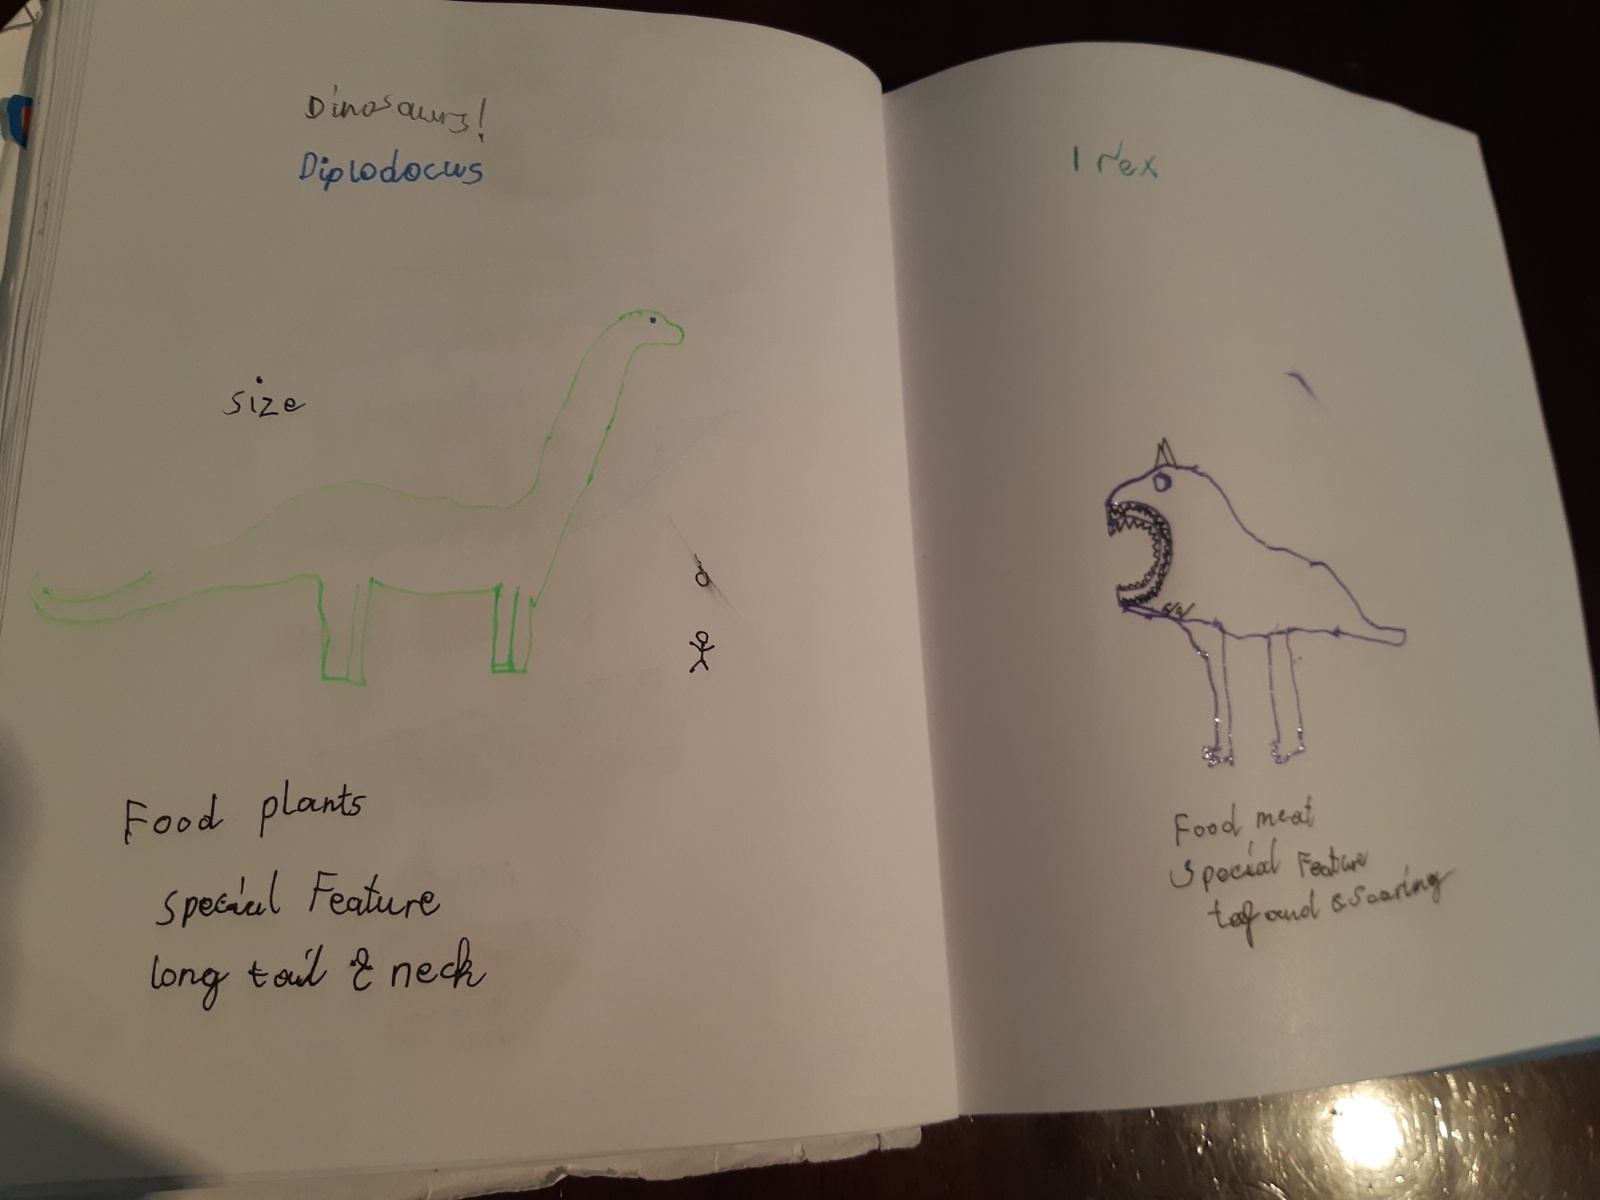 Dinosaurs!
Diplodocus
size
Food plants
special Feature
long tail & neck
I rex
Food meat
Special Feature
and